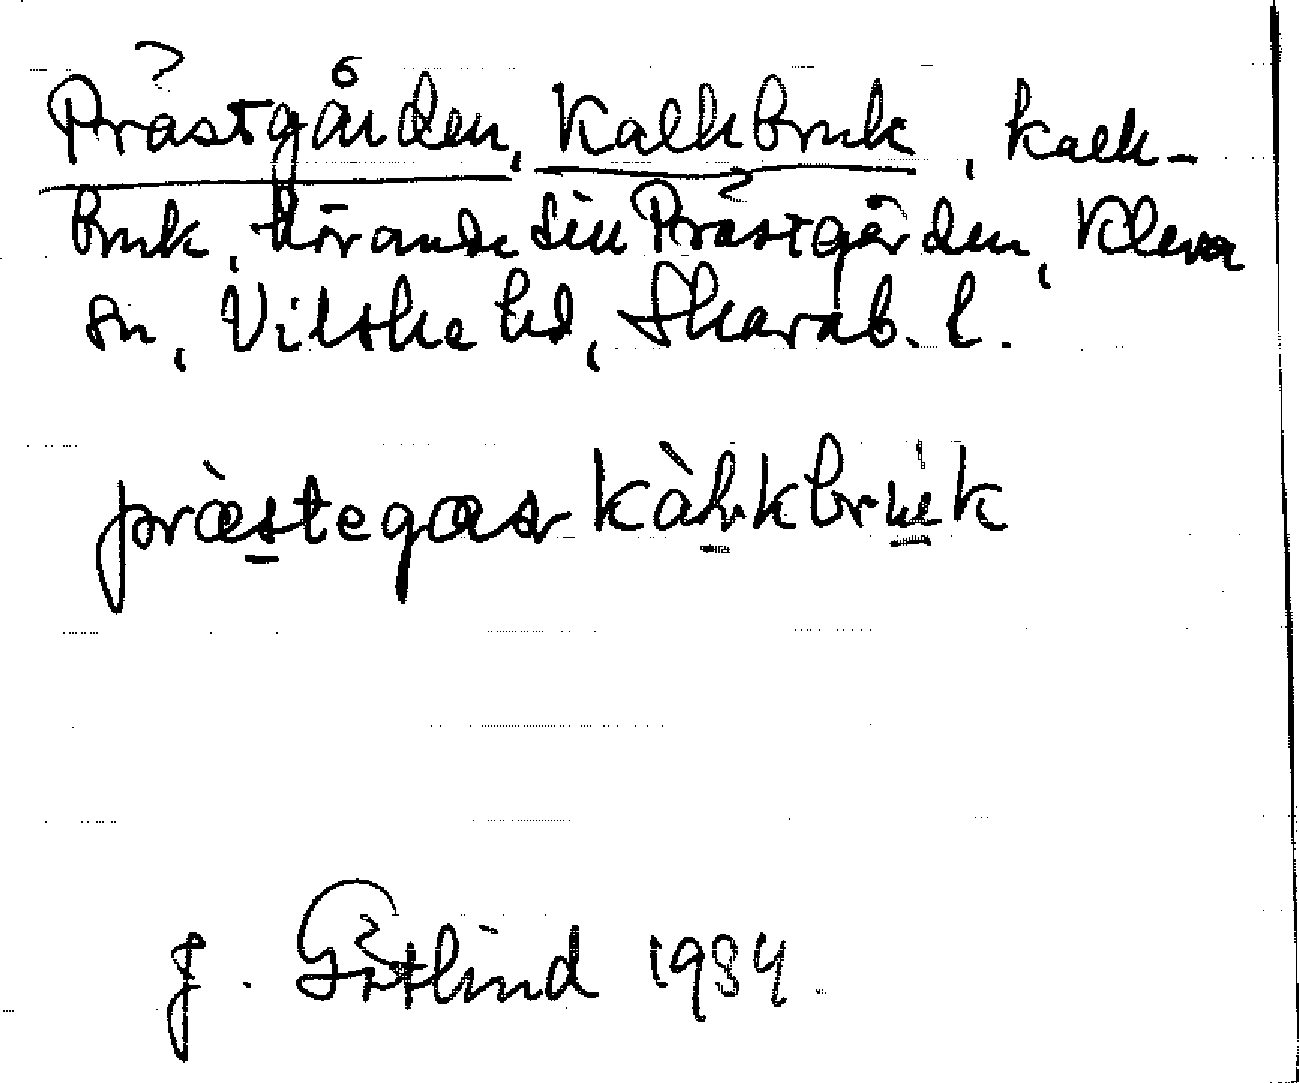 Prästgården, Kalkbruk, kalk-
bruk, hörande till Prästgården, Kleva
sn, Vilske hd, Skarab. l.
præ̀stegas kàlkbruk
J. Götlind 1934